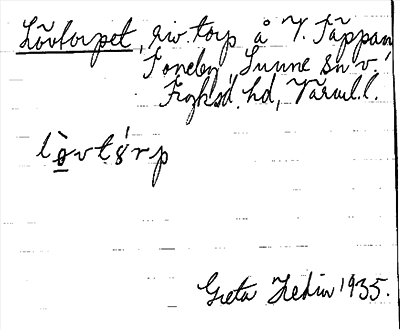 Lövtorpet, riv. torp å V. Täppan,
Toneby, Sunne sn v.
Fryksd. hd, Värml.
lò̱vtǿrp
Greta Hedin 1935.